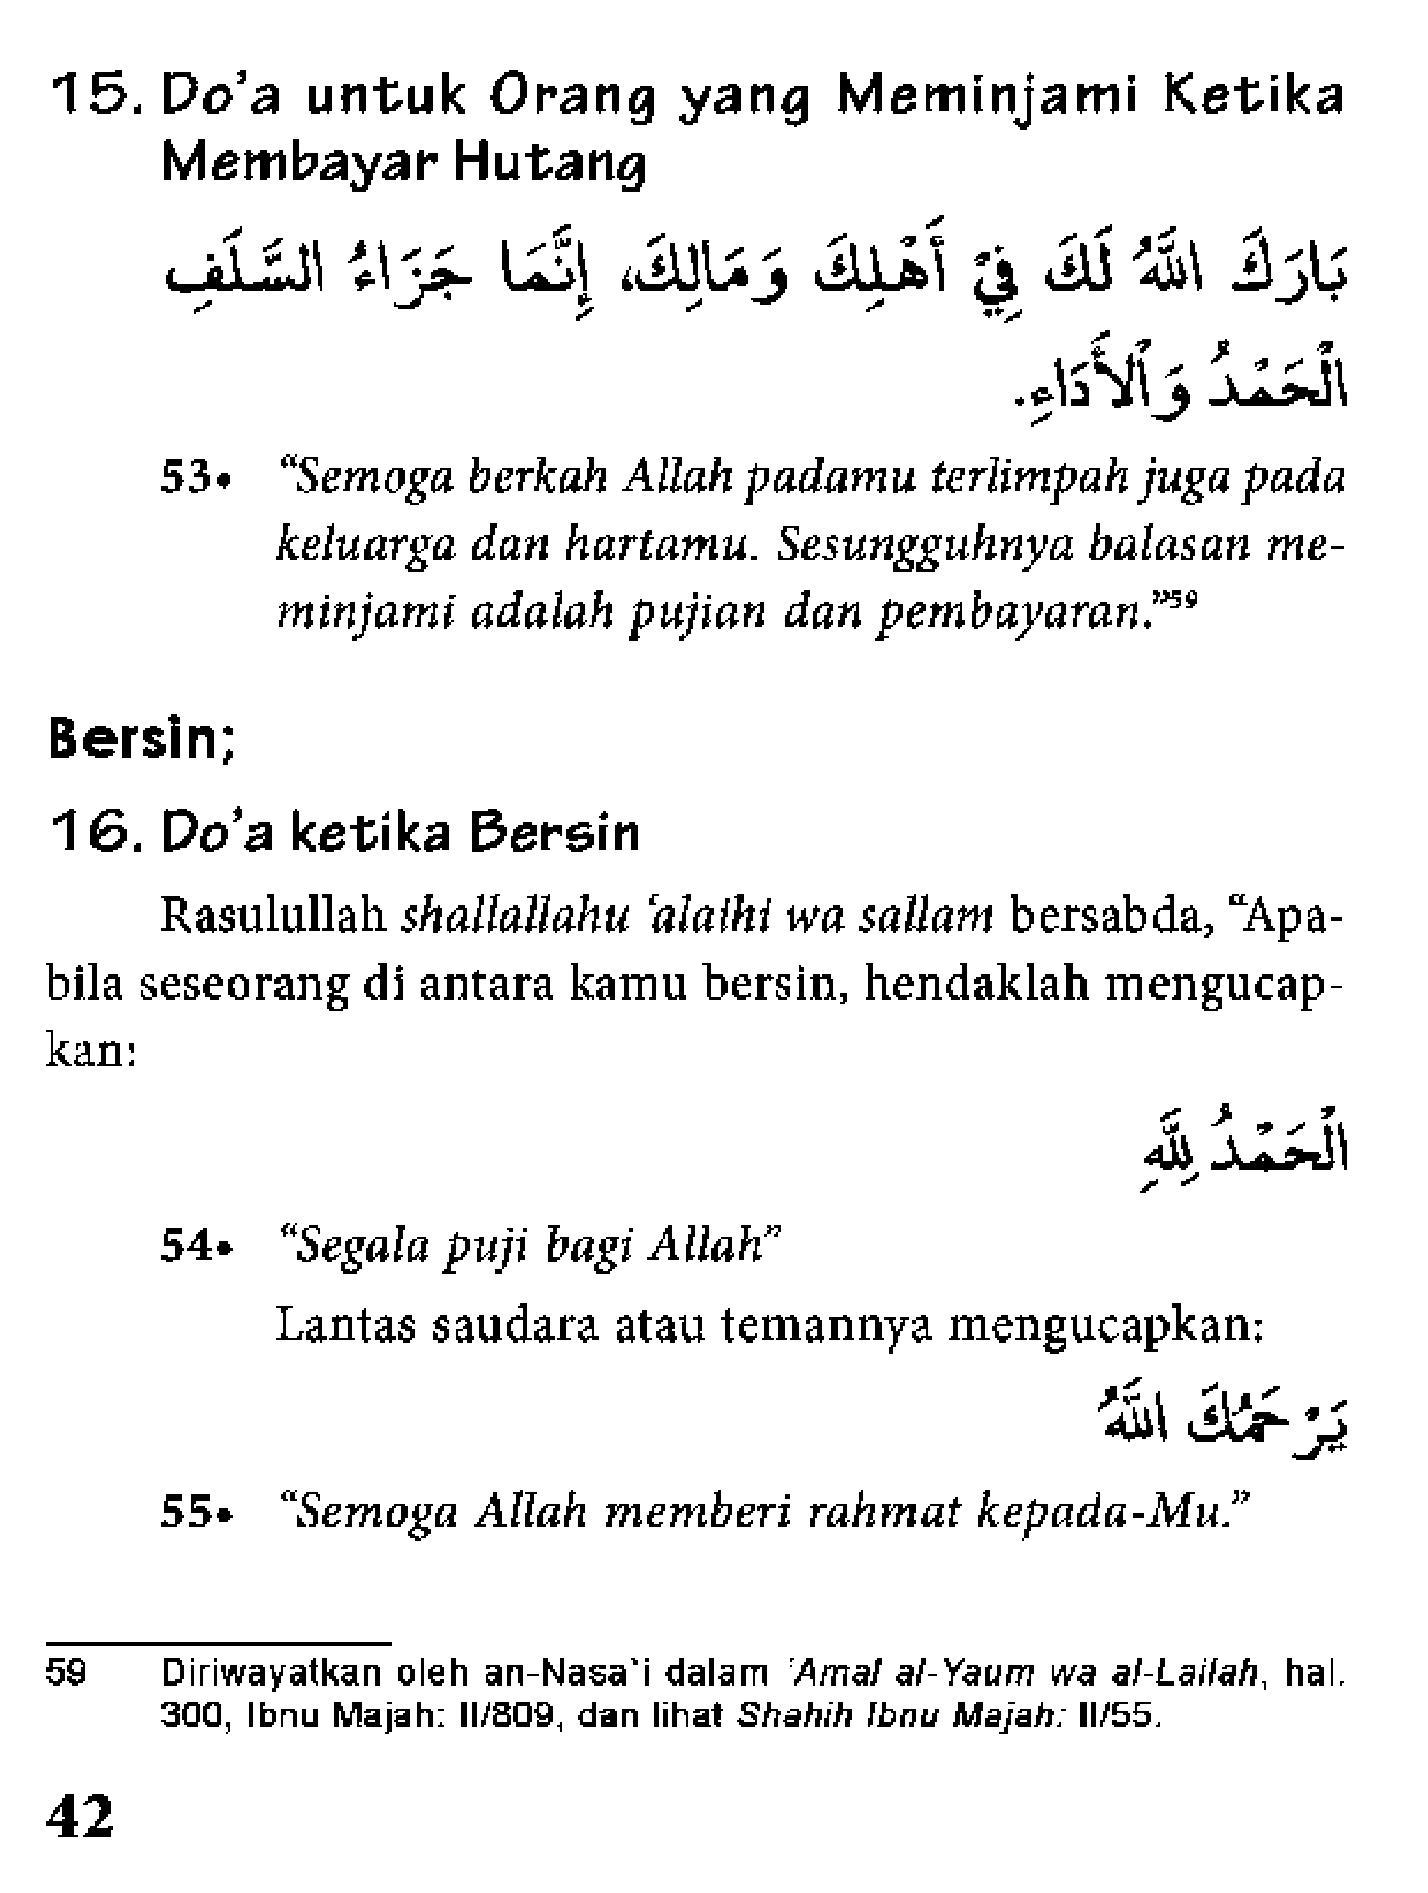 15. Do'a untuk Orang yang Meminjami Ketika
Membayar Hutang
بَارَكَ اللَّهُ لَكَ فِيْ أَهْلِكَ وَمَالِكَ، إِنَّمَا جَزَاءُ السَّلَفِ
الْحَمْدُ وَاْلأَدَاءِ.
53• “Semoga berkah Allah padamu terlimpah juga pada
keluarga dan hartamu. Sesungguhnya balasan me-
minjami adalah pujian dan pembayaran.”59
Bersin;
16. Do'a ketika Bersin
Rasulullah shallallahu ‘alaihi wa sallam bersabda, “Apa-
bila seseorang di antara kamu bersin, hendaklah mengucap-
kan:
الْحَمْدُ لِلَّهِ
54• “Segala puji bagi Allah”
Lantas saudara atau temannya mengucapkan:
يَرْحَمُكَ اللَّهُ
55• “Semoga Allah memberi rahmat kepada-Mu.”
59 Diriwayatkan oleh an-Nasa`i dalam ‘Amal al-Yaum wa al-Lailah, hal.
300, Ibnu Majah: II/809, dan lihat Shahih Ibnu Majah: II/55.
42